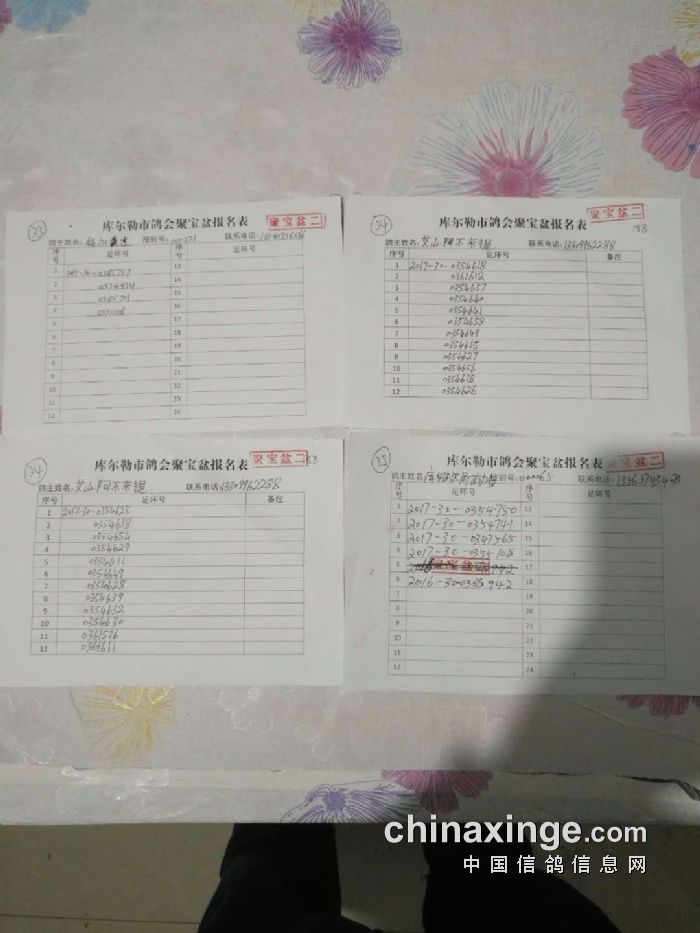 33
库尔勒市鸽会聚宝盆报名表
聚宝盆二
鸽主姓名: 摇到号: 000271 联系电话:
序号 足环号 序号 足环号
1 13
2 14
3 15
4 16
5 17
6 18
7 19
8 20
9 21
10 22
11 23
12 24
34
库尔勒市鸽会聚宝盆报名表
聚宝盆二
188
鸽主姓名: 艾山阿不来提 联系电话: 13309962288
序号 足环号 备注
1 2017-30-0354618
2 0361612
3 0354657
4 0354640
5 0354641
6 0354658
7 0354649
8 0354615
9 0354627
10 0354656
11 0354618
12 0354626
34
库尔勒市鸽会聚宝盆报名表
聚宝盆二
188
鸽主姓名: 艾山阿不来提 联系电话: 13309962288
序号 足环号 备注
1 2017-30-0354623
2 0354638
3 0354654
4 0354629
5 0354611
6 0354649
7 0354628
8 0354639
9 0354632
10 0354630
11 0361576
12 0361611
35
库尔勒市鸽会聚宝盆报名表
聚宝盆二
鸽主姓名: 000065 联系电话:
序号 足环号 序号 足环号
1 2017-30-0354750 13
2 2017-30-0354741 14
3 2017-30-0347565 15
4 2017-30-0355108 16
5 聚宝盆二 942 17
6 2016-30-0368942 18
7 19
8 20
9 21
10 22
11 23
12 24
chinaxinge.com
中国信鸽信息网